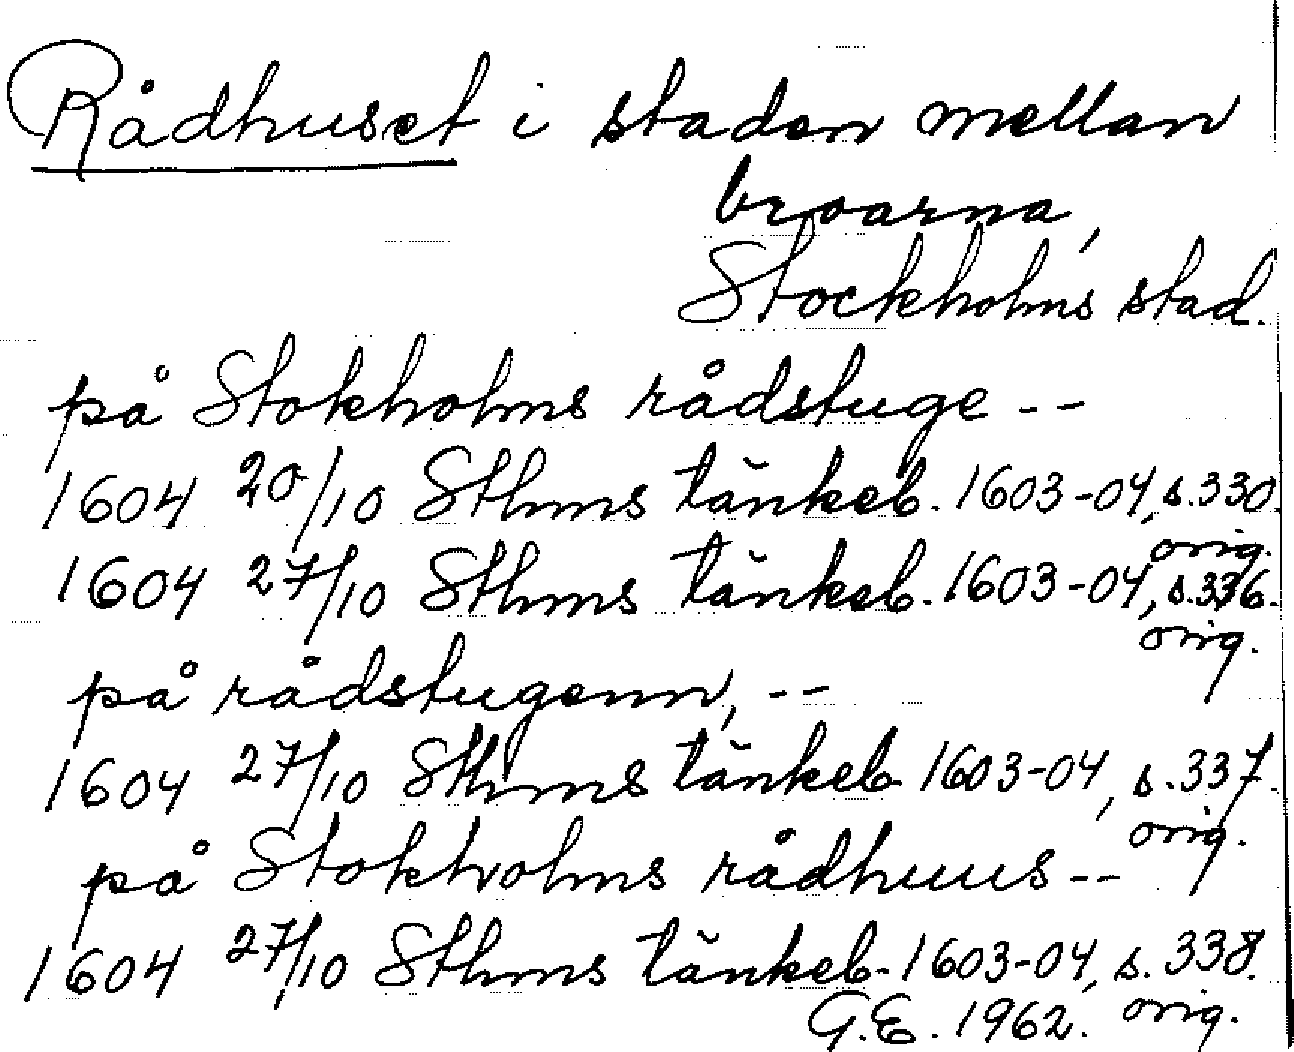 Rådhuset i staden mellan
broarna,
Stockholms stad.
på Stokholms rådstuge --
1604 20/10 Sthms tänkeb. 1603-04, s.330.
orig.
1604 27/10 Sthms tänkeb. 1603-04, s.336.
orig.
på rådstugenn, --
1604 27/10 Sthms tänkeb 1603-04, s.337.
orig.
på Stokholms rådhuus --
1604 27/10 Sthms tänkeb. 1603-04, s. 338.
G.E. 1962. orig.